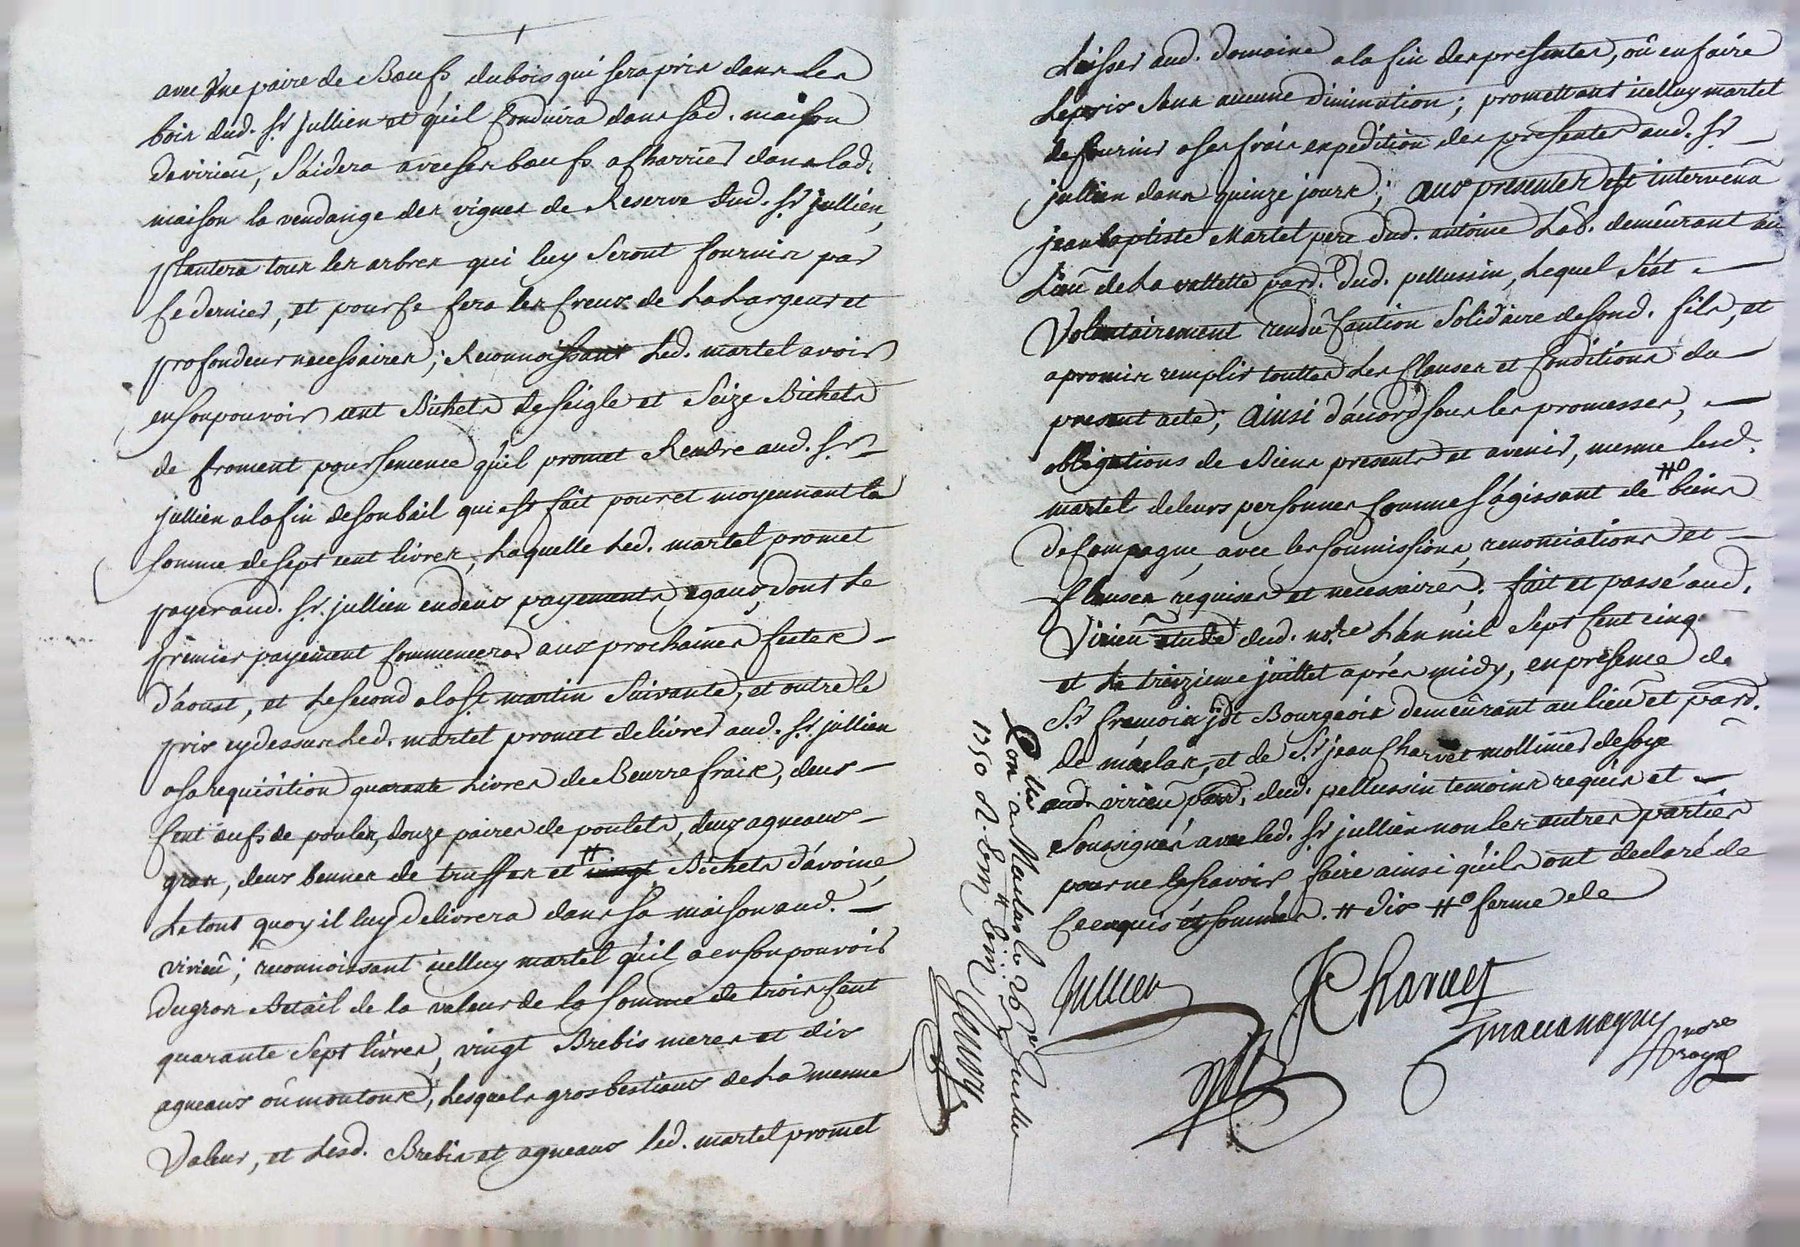 avec une paire de Bœufs, du bois qui sera pris dans les
bois dud. Sr Jullien et qu'il conduira dans sad. maison
de virieu, s'aidera avec ses bœufs a charrier dans lad.
maison la vendange des vignes de Reserve dud. Sr jullien,
plantera tous les arbres qui luy seront fournis par
ce dernier, et pour ce fera les creux de la largeur et
profondeur necessaires; Reconnoissant led. martel avoir
en son pouvoir cent Bichets de seigle et seize Bichets
de froment pour semence qu'il promet Rendre aud. Sr
jullien a la fin de son bail qui est fait pour et moyennant la
somme de sept cent livres, laquelle led. martel promet
payer aud. Sr. jullien en deux payements egaux, dont le
premier payement commencera aux prochaines festes
d'aoust, et le second a la st martin suivante, et outre le
prix cy dessus led. martel promet delivrer aud. Sr jullien
a sa requisition quarante livres de Beurre frais, deux
cent œufs de poules, douze paires de poulets, deux agneaux
gras, deux bennes de truffes et # vingt Bichets d'avoine,
le tout quoy il luy delivrera dans sa maison aud.
virieu; reconnoissant icelluy martel qu'il a en son pouvoir
du gros Betail de la valeur de la somme de trois cent
quarante sept livres, vingt Brebis meres et dix
agneaux où moutons, lesquels gros bestiaux de la meme
valeur, et lesd. Brebis et agneaux led. martel promet
laisser aud. domaine a la fin des presentes, où en faire
le prix sans aucune diminution; promettant icelluy martel
de fournir a ses frais expedition des presentes aud. Sr
jullien dans quinze jours; aux presentes est intervenu
jean baptiste Martel pere dud. antoine lab. demeurant au
lieu de la vallette parr. dud. pellussin, lequel s'est
volontairement rendu caution solidaire de sond. fils, et
a promis remplir touttes les clauses et conditions du
present acte; ainsi d'acord sous les promesses,
obligations de Biens presents et avenir, meme lesd.
martel de leurs personnes comme s'agissant de ##° biens
de campagne, avec les soumissions, renonciations et
clauses requises et necessaires. fait et passé aud.
Virieu etude dud. nore. l'an mil sept cent cinq.
et le treizieme juillet après midy, en présence de
Sr. francois jdt Bourgeois demeurant au lieu et parr.
de máclas, et de Sr jean Charvet mollinier de soye
aud. virieu parr. dud. pellussin temoins requis et
soussignés avec led. Sr jullien non les autres parties
pour ne le scavoir faire ainsi qu'ils ont declaré de
ce enquis et sommés. # dix ##° ferme de
Jullien
JCharvet
nore
royal
Con.lé a Maclas le 26e Juillet
1750 R.